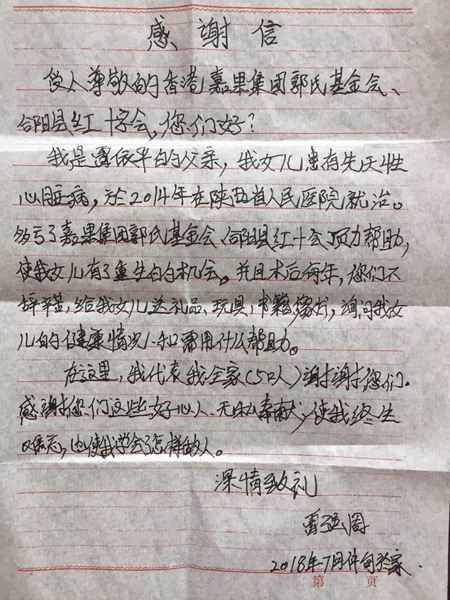 感谢信
令人尊敬的香港嘉里集团郭氏基金会、
合阳县红十字会,您们好?
我是雷依平的父亲,我女儿患有先天性
心脏病,于2014年在陕西省人民医院就治。
多亏了嘉里集团郭氏基金会、合阳县红十字会、顶力帮助,
使我女儿有了重生的机会。并且术后每年,您们不
辞辛苦,给我女儿送礼品、玩具、书籍、询问我女
儿的健康情况、和需用什么帮助。
在这里,我代表我全家(5口人)谢谢您们。
感谢您们这些好心人、无私奉献,使我终生
难忘,也使我学会了怎样做人。
深情致礼
雷
2018年7月
第 页